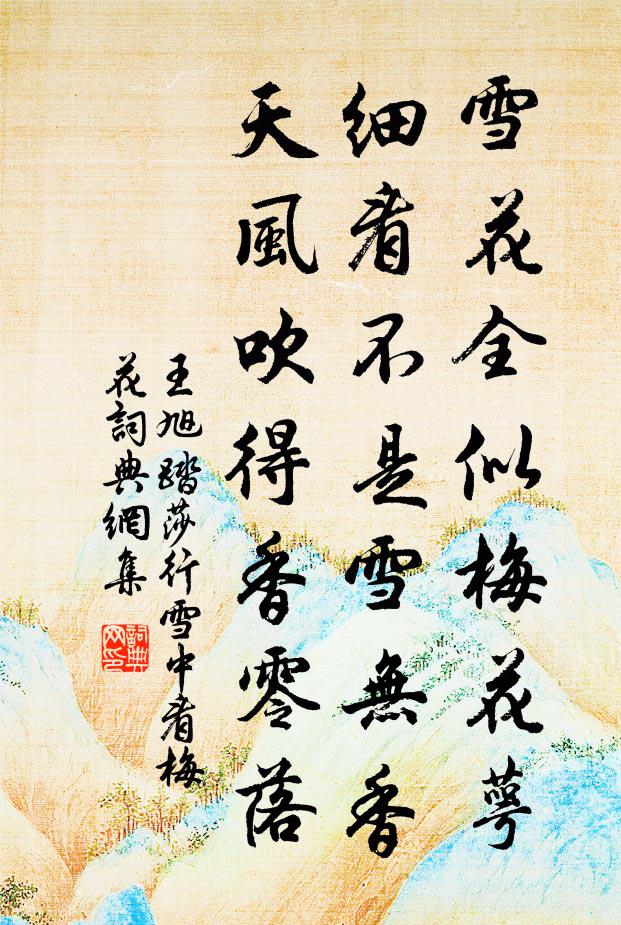 雪花全似梅花萼
細看不是雪無香
天風吹得香零落
王旭踏莎行雪中看梅
花詞典網集
詞典網印